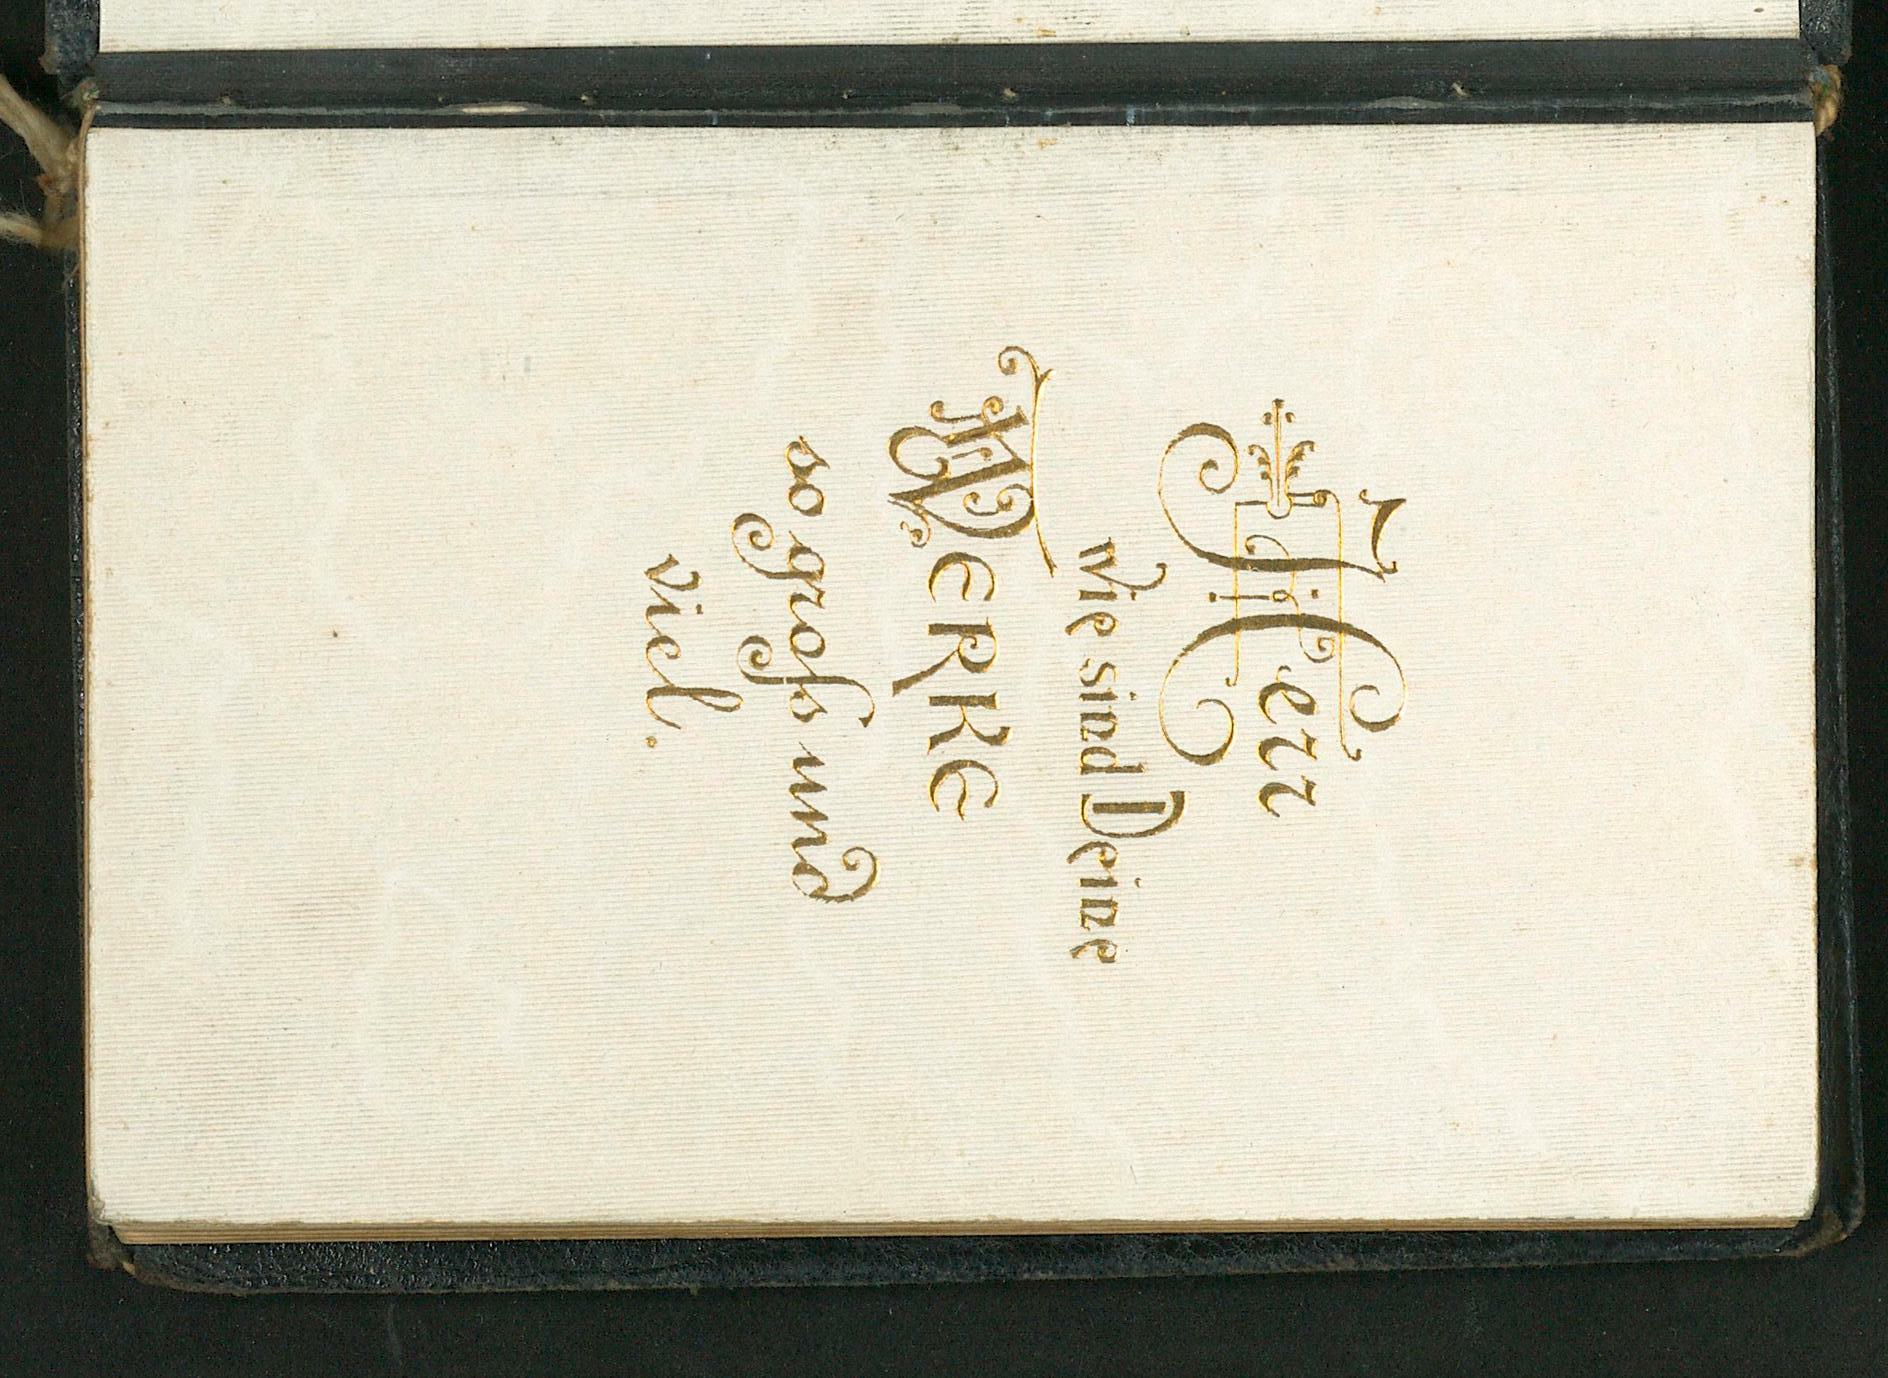 Herr
wie sind Deine
WERKE
so groſs und
viel.